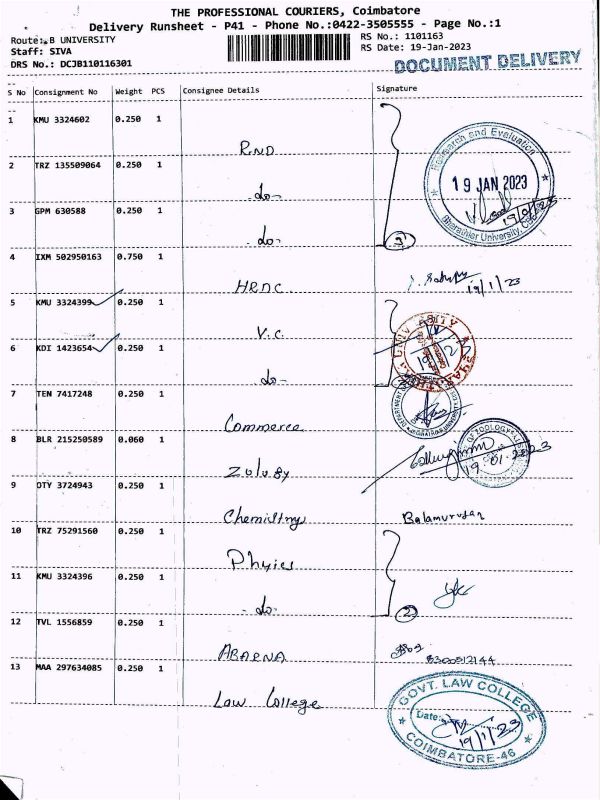 THE PROFESSIONAL COURIERS, Coimbatore
Delivery Runsheet - P41 - Phone No.:0422-3505555 - Page No.:1
Route: B UNIVERSITY
RS No.: 1101163
Staff: SIVA
RS Date: 19-Jan-2023
DRS No.: DCJB110116301
DOCUMENT DELIVERY
S No Consignment No Weight PCS Consignee Details Signature
1 KMU 3324602 0.250 1
RND
2 TRZ 135509064 0.250 1
-do-
Research and Evaluation
19 JAN 2023
19/01/23
Bharathiar University,
3 GPM 630588 0.250 1
-do-
3
4 IXM 502950163 0.750 1
HRDC
19/1/23
5 KMU 3324399 0.250 1
V.C.
6 KDI 1423654 0.250 1
-do-
7 TEN 7417248 0.250 1
Commerce
8 BLR 215250589 0.060 1
Zology
OF ZOOLOGY
19.01.2023
9 OTY 3724943 0.250 1
Chemistry
Balamurugan
10 TRZ 75291560 0.250 1
Phyics
11 KMU 3324396 0.250 1
-do-
2
12 TVL 1556859 0.250 1
ABARNA
8300512144
13 MAA 297634085 0.250 1
Law College
GOVT. LAW COLLEGE
Date:
19/1/23
COIMBATORE-46